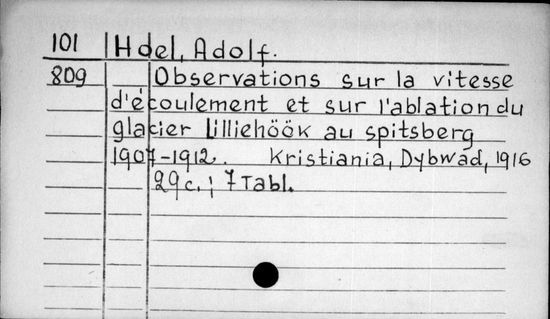 101 Hoel, Adolf.
809 Observations sur la vitesse
d'écoulement et sur l'ablation du
glacier Lilliehöök au spitsberg
1907-1912. Kristiania, Dybwad, 1916
29c.; 7 Tabl.